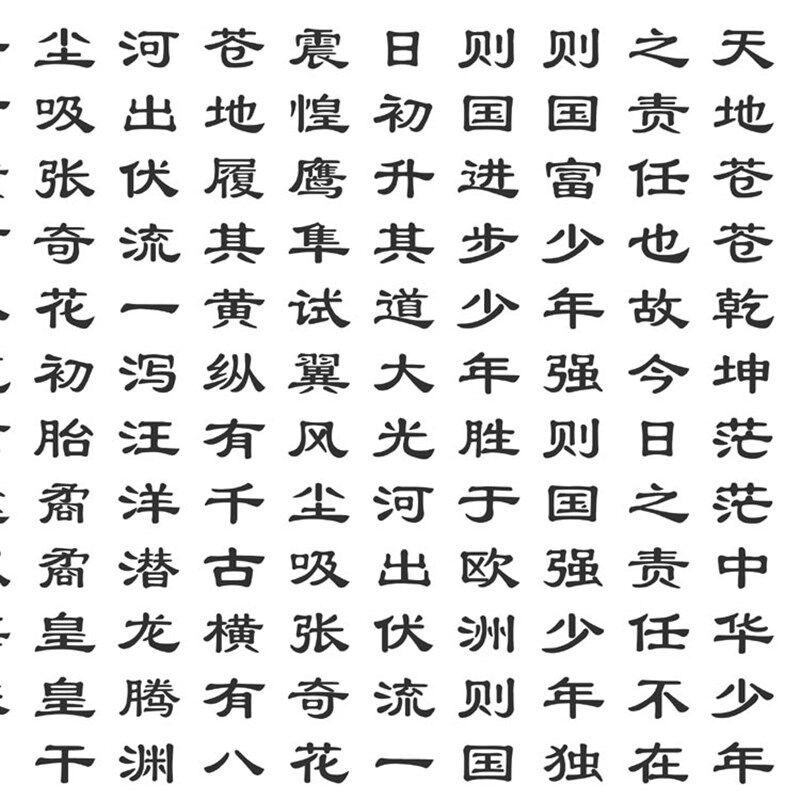 天地苍苍乾坤茫茫中华少年
之责任也故今日之责任不在
则国富少年强则国强少年独
则国进步少年胜于欧洲则国
日初升其道大光河出伏流一
震惶鹰隼试翼风尘吸张奇花
苍地履其黄纵有千古横有八
河出伏流一泻汪洋潜龙腾渊
尘吸张奇花初胎矞矞皇皇干